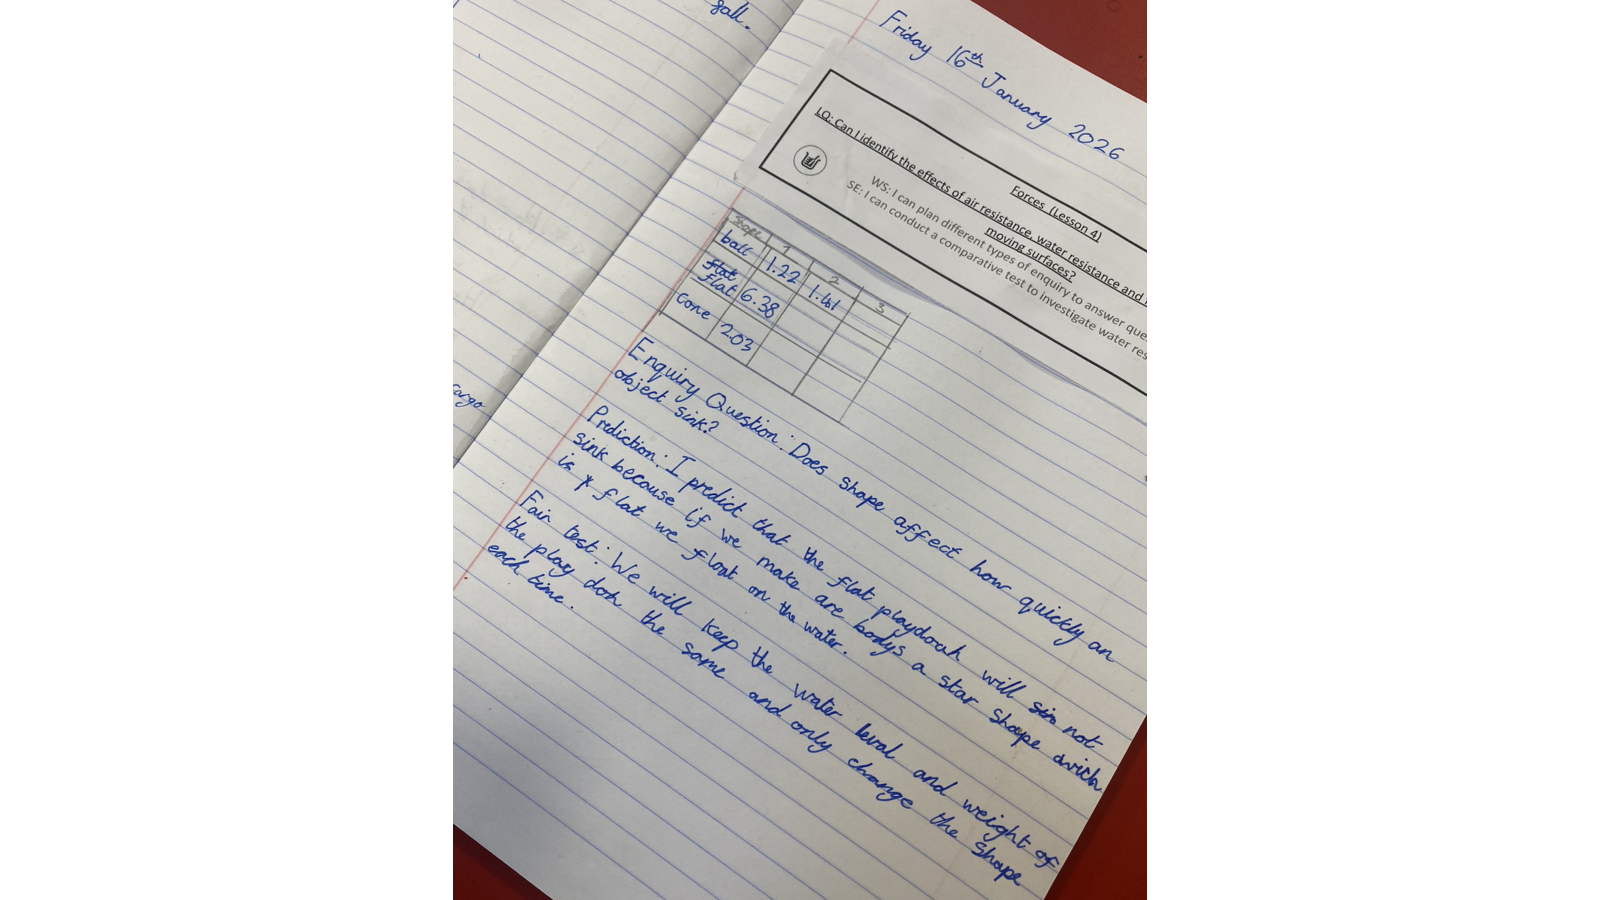 fall.
cargo
Friday 16th January 2026
Forces (Lesson 4)
LQ: Can I identify the effects of air resistance, water resistance and
moving surfaces?
WS: I can plan different types of enquiry to answer que
SE: I can conduct a comparative test to investigate water res
Shape 1 2 3
ball 1.22 1.41
flat
flat 6.38
Cone 2.03
Enquiry Question: Does shape affect how quickly an
object sink?
Prediction: I predict that the flat playdouh will sin not
sink because if we make are bodys a star shape which
is flat we float on the water.
Fair test: We will keep the water leval and weight of
the play doh the same and only change the shape
each time.